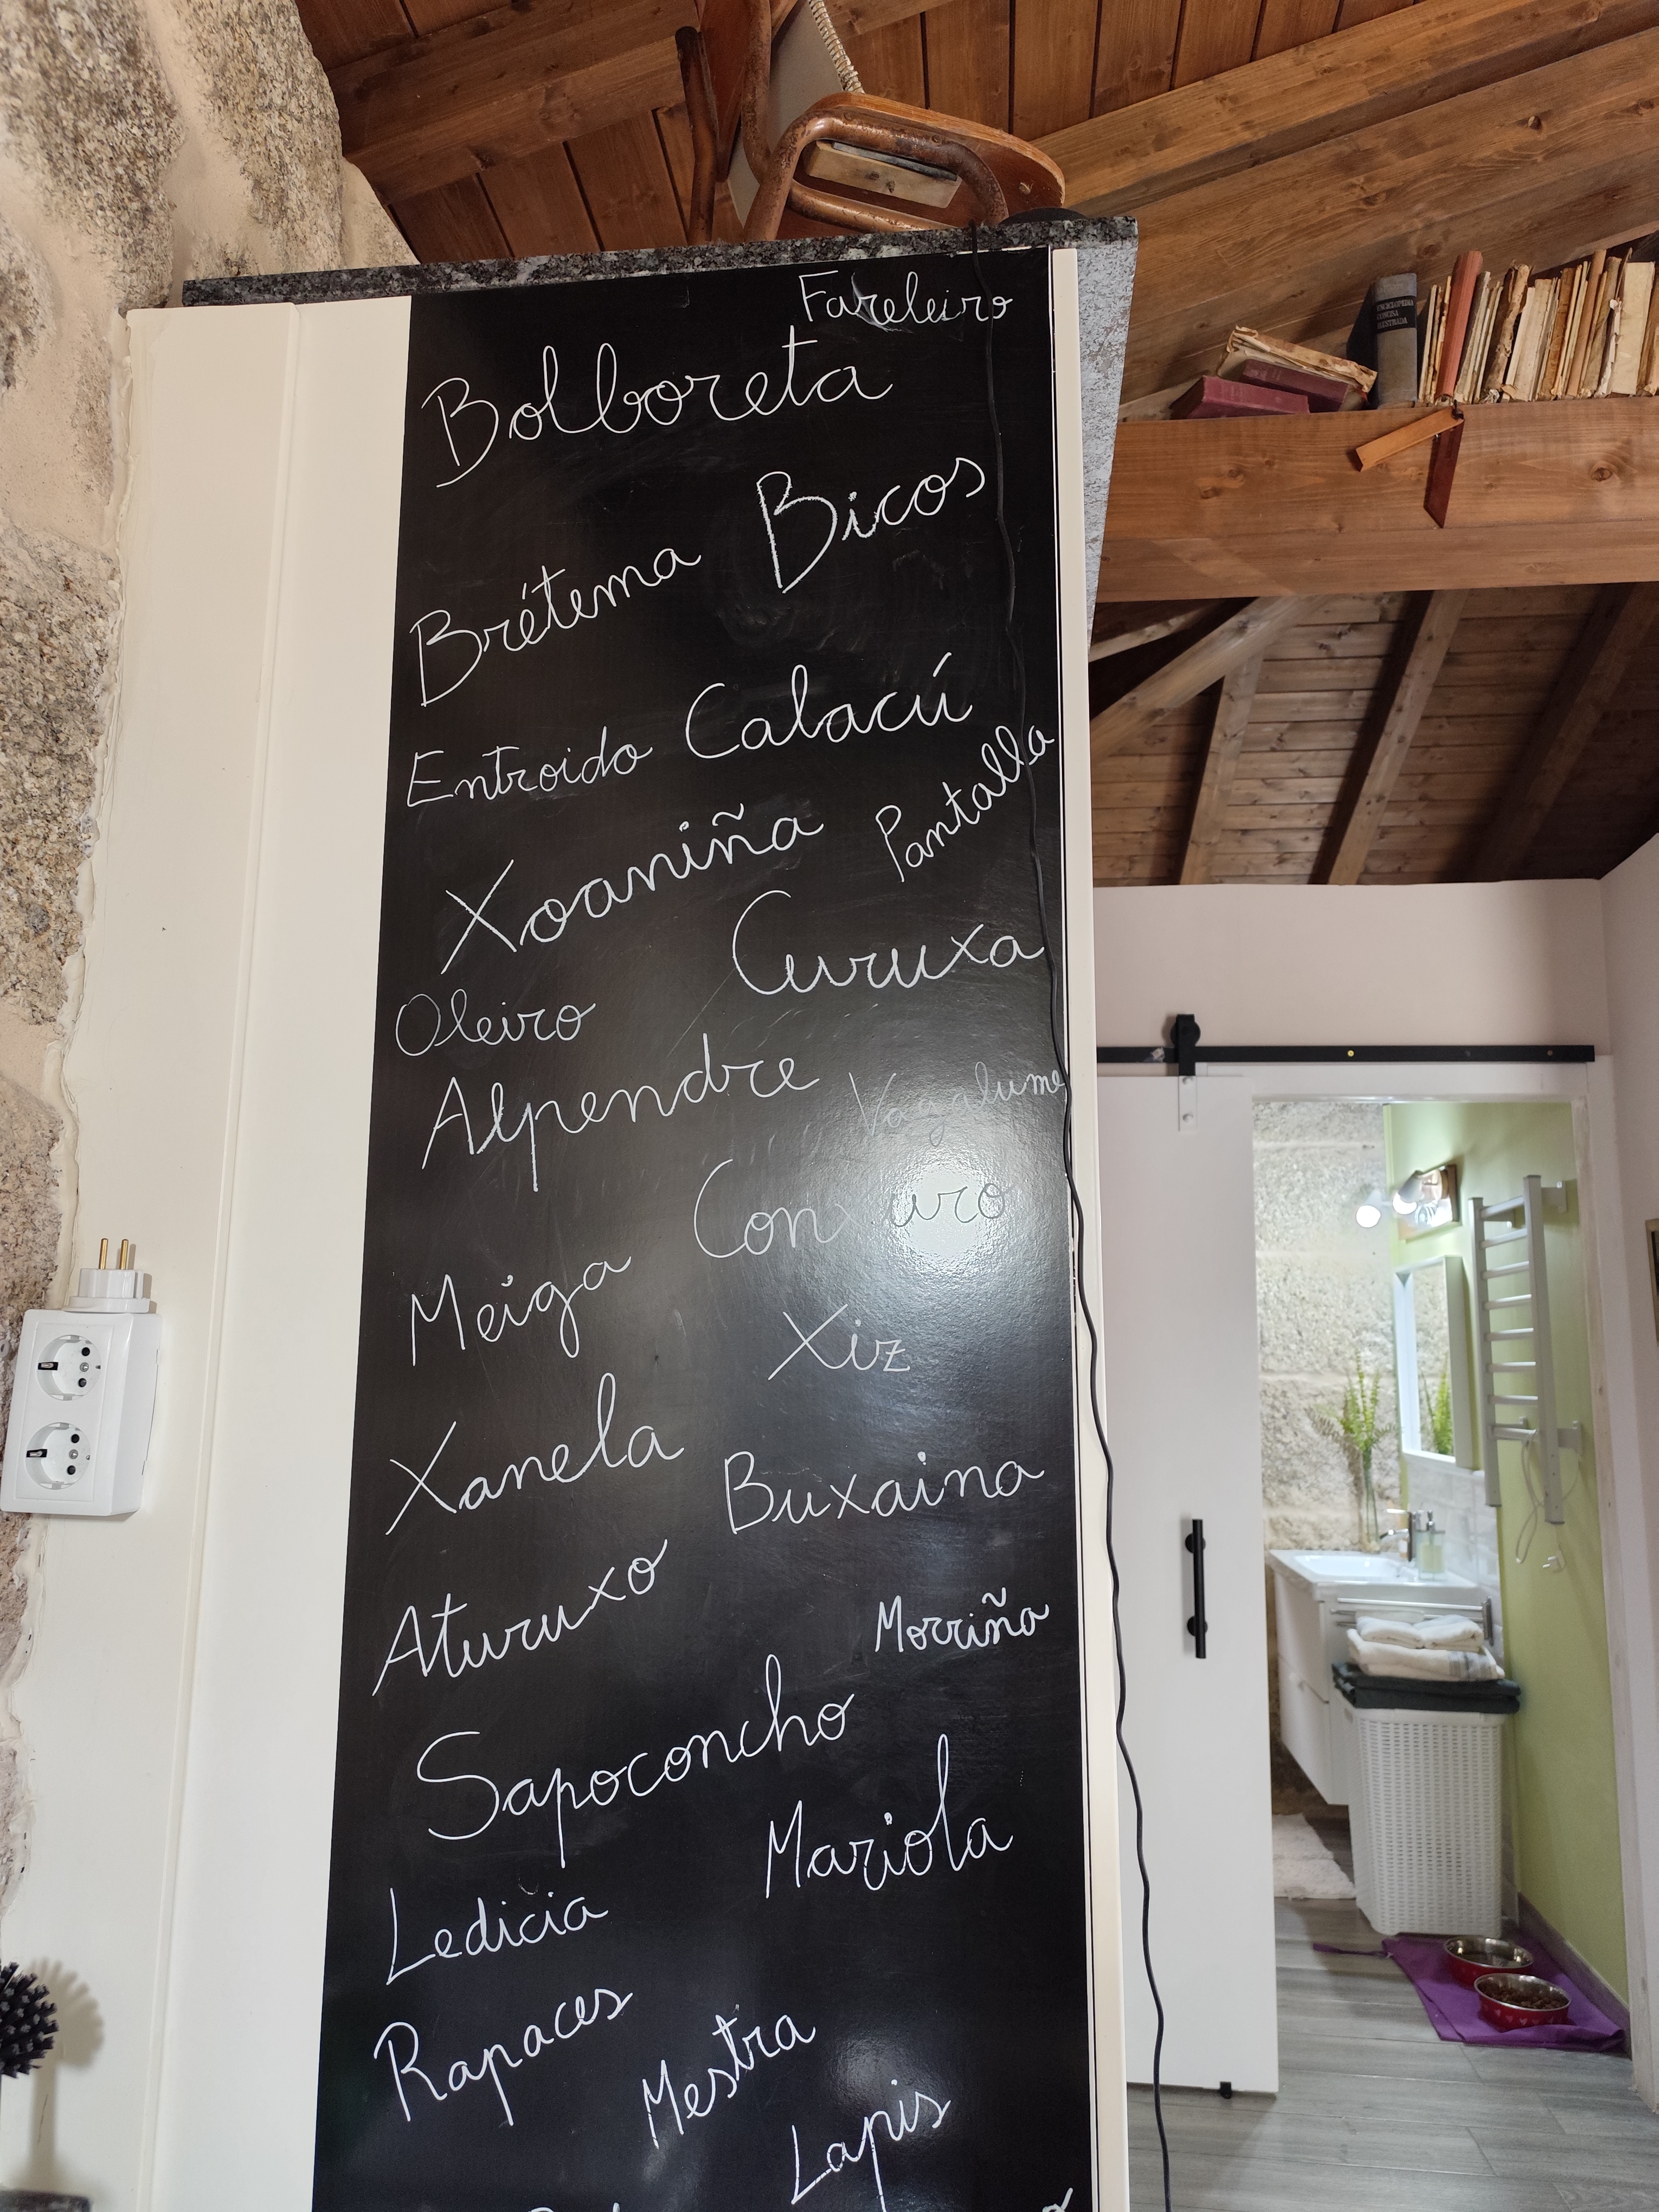 Fareleiro
Bolboreta
Bicos
Brétema
Entroido Calacú
Pantalla
Xoaniña
Curuxa
Oleiro
Alpendre Vagalume
Conxuro
Meiga
Xiz
Xanela
Buxaina
Aturuxo
Morriña
Sapoconcho
Mariola
Ledicia
Rapaces
Mestra
Lapis
ENCICLOPEDIA
CONCISA
ILUSTRADA